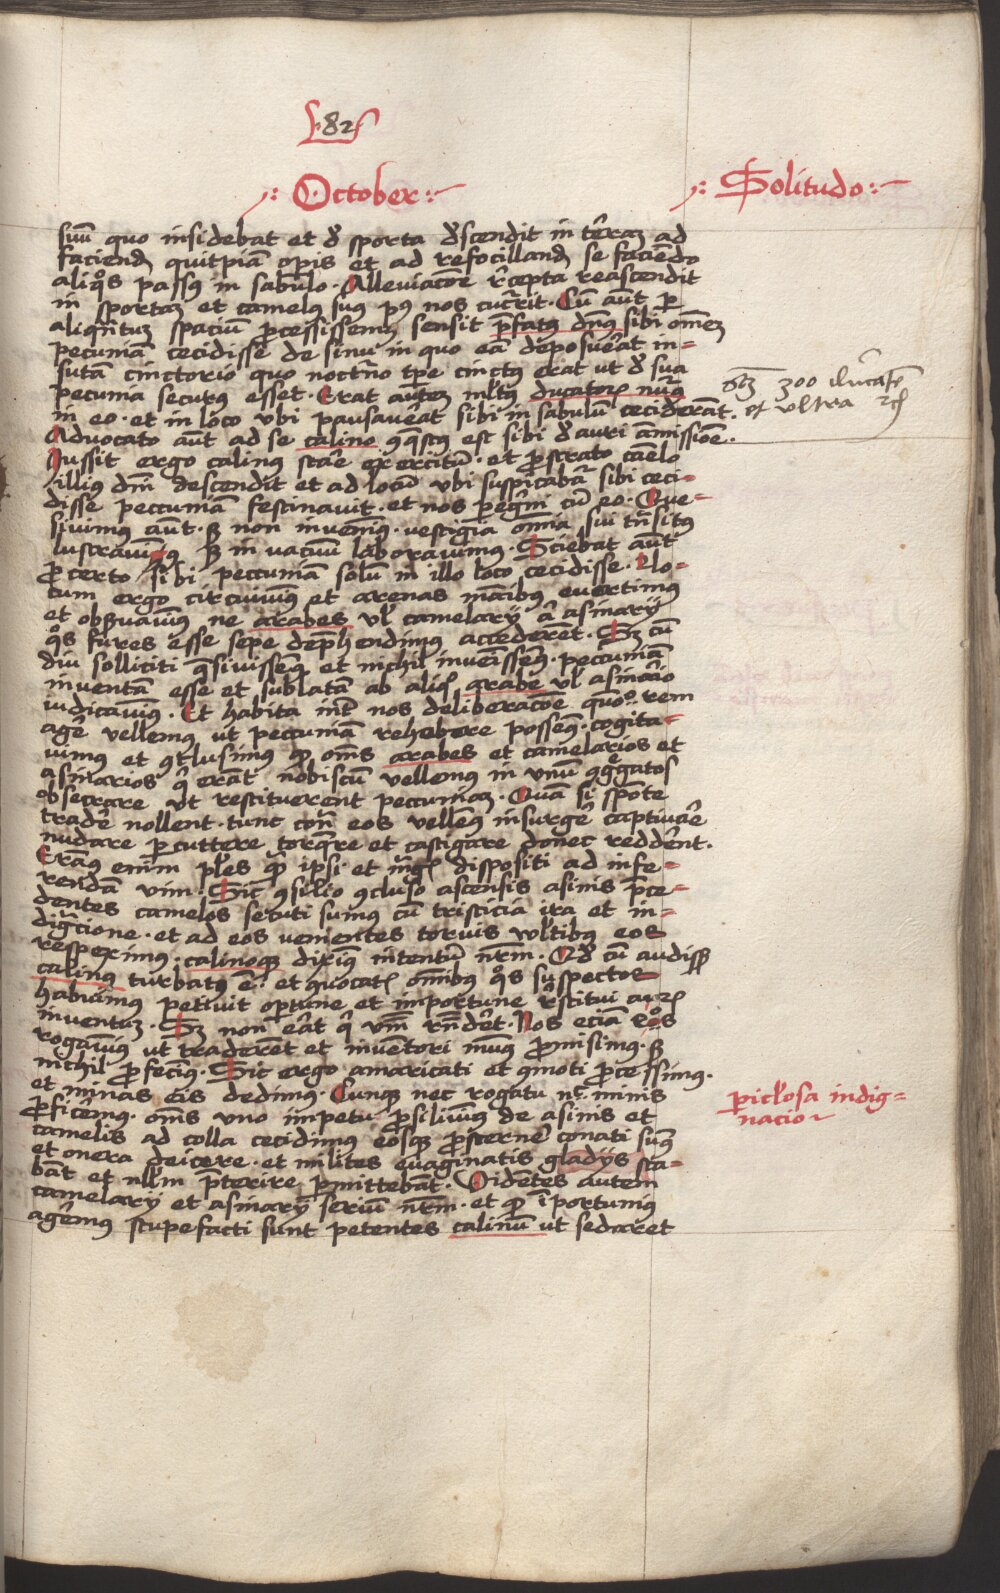 82
October
Solitudo
suū quo insidebat et d̄ sporta descendit in terrā ad
faciend quitpiā opis et ad refocilland se faciēdo
aliqs passus in sabulo. Alleviacōe recepta reascendit
in sportam et camelus suus pq nos cucurrit. Cū aūt p
aliqntum spaciū pcessissemus sensit pfatus dns sibi omem
pecuniā cecidisse de sinu in quo eā deposuerat in=
sutā cinctorio quo nocturno tpe cinctus erat ut d̄ sua
pecunia securus esset. Erat autem mltus ducatorum nurus
in eo. et in loco ubi pausaverat sibi in sabulū ceciderāt.
300 ducatos
et ultra
Advocato aūt ad se calino qquestus est sibi d̄ auri āmissiōe.
Iussit ergo calinus stare exercitū. et pstrato camelo
illius dni descendit et ad locū ubi suspicabat sibi ceci=
disse peccuniā festinavit. et nos pegrini cū eo. Que=
sivimus aūt. sz non invenimus. vestigia omnia sui trnsitus
lustravimus sz in vacuū laboravimus. Sciebat aūt
p certo sibi peccuniā solū in illo loco cecidisse. Lo=
cum ergo circuivimus et arenas manibus evertimus
et obsvavimus ne arabes vl camelarij aut asinarij
qs fures esse sepe dephendimus accederent. Sz cū
diu solliciti qsivissemus et nichil invenissemus. peccuniā
inventā esse et sublatā ab aliq arabe vl asinario
iudicavimus. Et habita inter nos deliberacōe quo rem
agere vellemus ut peccuniā rehabere possemus. cogita=
vimus et qclusimus q oms arabes et camelarios et
asinarios q erāt nobiscū vellemus in unū qgregatos
obsecrare ut restituerent peccuniam. Quā si spōte
tradere nollent. tunc contra eos vellemus insurgere captivare
nudare pcuttere torquere et castigare donec redderent.
Eramus enim plres q̄ ipsi et magis dispositi ad infe=
rendā vim. Sic qsilio qcluso ascensis asinis pce=
dentes camelos secuti sumus cū tristicia ira et in=
digcione. et ad eos venientes torvis vultibus eos
respeximus. calinoque diximus intentū nrm. Qd cū audisset
calinus turbatus ē. et qvocatis omnibus qs suspectos
habuimus petivit optune et importune restitui aurum
inventum. Sz non erat q vnū redderet. Nos etiā eos
rogavimus ut traderent et inventori munus pmisimus. sz
nichil pfecimus. Sic ergo amaricati et qmoti pcessimus.
et minas eis dedimus. Cunque nec rogatu nec minis
pficeremus. oms uno impetu psiluimus de asinis et
periclosa indig=
nacio
camelis ad colla cecidimus eosque psternere conati sumus
et onera deicere. et milites evaginatis gladijs sta=
bant et nllm pterire pmittebāt. Videntes autem
camelarij et asinarij seriū nrm. et q īportunius
ageremus stupefacti sunt petentes calinū ut sedaret